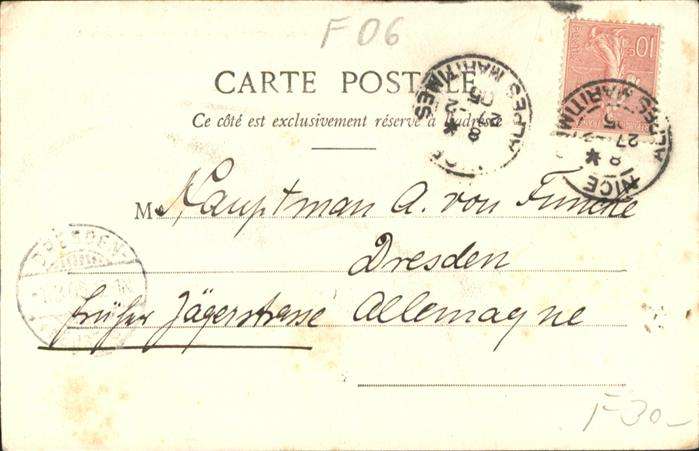 F 06
CARTE POSTALE
Ce côté est exclusivement réservé à l'adresse
NICE
ALPES MARITIMES
28
2
05
NICE
ALPES MARITIMES
8
27
05
10
M Hauptman A. von Funcke
Dresden
DRESDEN
früher Jägerstrasse Allemagne
F 30-